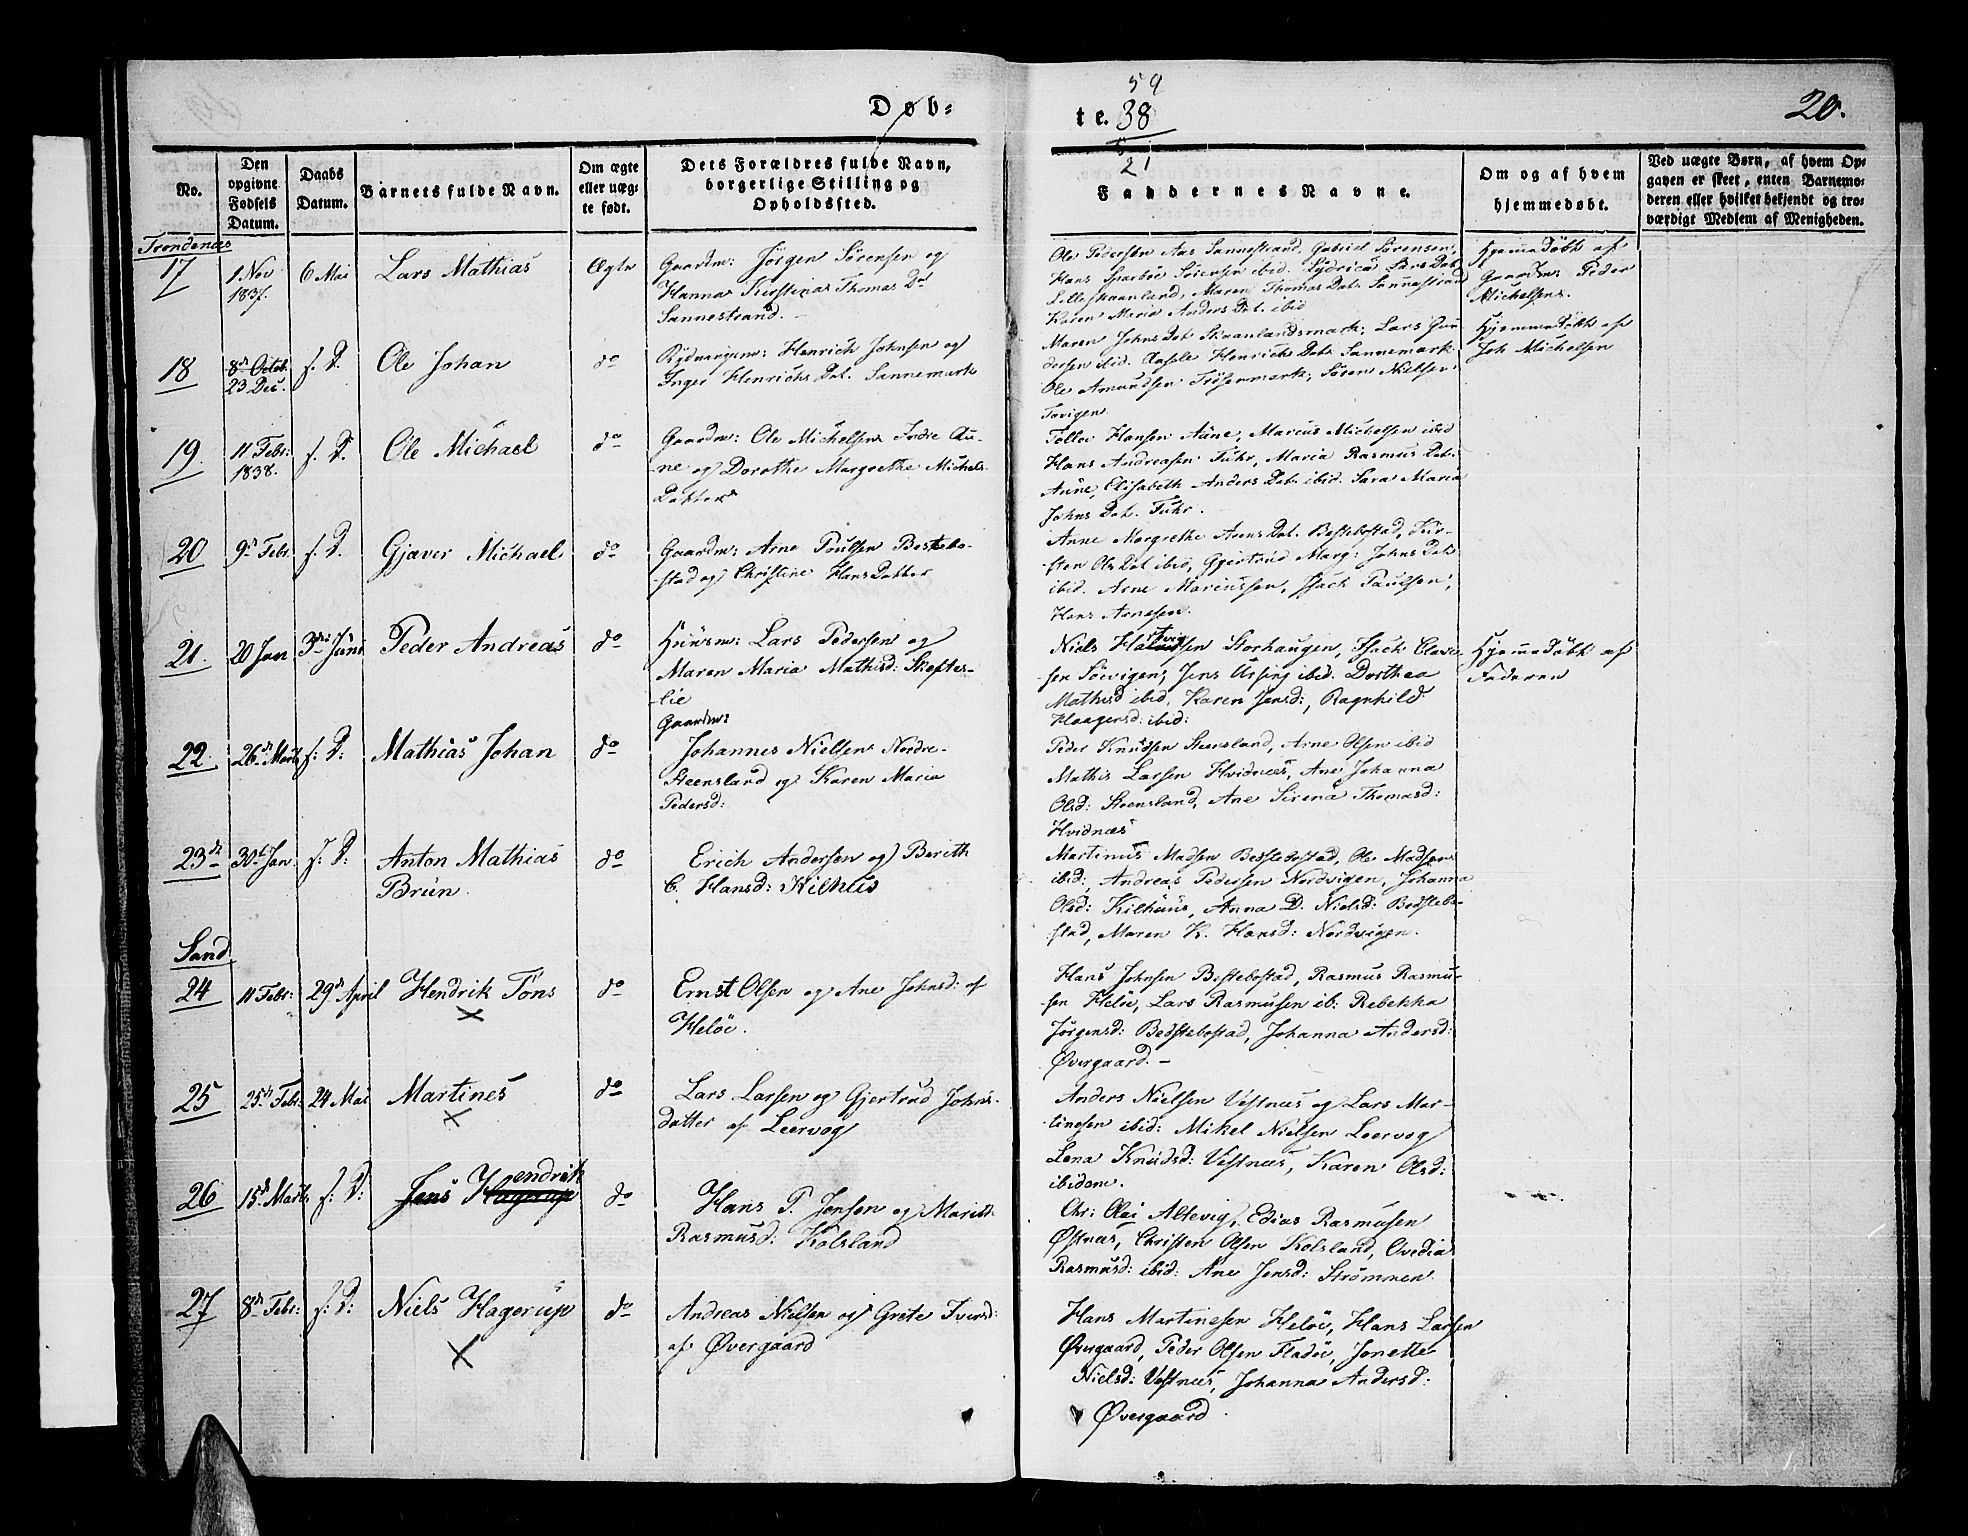 Døb=
te.
59
38
21
20.
No.
Den opgivne Fødsels Datum.
Daabs Datum.
Barnets fulde Navn.
Om ægte eller uæg-
te født.
Dets Forældres fulde Navn,
borgerlige Stilling og
Opholdssted.
Faddernes Navne.
Om og af hvem
hjemmedøbt.
Ved uægte Børn, af hvem Op-
gaven er skeet, enten Barnemo-
deren eller hvilket bekjendt og tro-
værdigt Medlem af Menigheden.
Trondenæs
17
1 Nov
1837.
6 Mai
Lars Mathias
Ægte
Gaardm: Jørgen Sørensen og
Hanna Kirstina Thomas D
Sannestrand.
Ole Pedersen Aas Sannestrand, Gabriel Sørensen,
Hans Sparboe Sørensen ibid. Lars Dat.
Lilleskaanland, Maren Thomas Dat. Sannestrand
Karen Maria Anders Dat. ibid
Hjemmedöbt af
Gaardm: Peder
Michelsen.
18
8de Octob.
23 Dec.
s. D.
Ole Johan
do
Rydningsm: Henrich Johnsen og
Inger Henrichs Dat. Sannemark
Maren Johns Dat Skaanlandsmark, Lars Gun
dersen ibid. Henrichs Dat. Sannemark
Ole Amundsen Trösenmark, Sören Nielsen
Tovigen
Hjemmedöbt af
Joh Michelsen
19
11 Febr:
1838.
s. D.
Ole Michael
do
Gaardm: Ole Michelsen Indre Au-
ne og Dorothe Margrethe Michels-
Datter
Tollev Hansen Aune, Marcus Michelsen ibid
Hans Andreasen Fuhr, Maria Rasmus Dat.
Aune, Elisabeth Anders Dat. ibid. Sara Maria
Johns Dat. Fuhr.
20
9de Febr.
s. D.
Gjæver Michael
do
Gaardm: Arne Poulsen Bestebo-
stad og Christine Hans Datter
Anne Margrethe Arns Dat. Bestebostad, Kir-
sten Ols Dat ibid, Gjertrud Marg: Johns Dat
ibid. Arne Marcussen, Isack Paulsen,
Hans Arnesen.
21.
20 Jan
3die Juni
Peder Andreas
do
Huusm: Lars Pedersen og
Maren Maria Mathisd: Skefter-
lie
Niels Hartvigsen Storhaugen, Isack Clave-
sen Sövigen, Jens Ursing ibid. Dorthea
Mathisd ibid, Karen Jensd:, Ragnhild
Haagensd: ibid:
Hjemmedöbt af
Faderen
22.
26de Marts
s: D:
Mathias Johan
do
Gaardm:
Johannes Nielsen Nordre-
Steensland og Karen Maria
Pedersd:
Peder Knudsen Steensland, Arne Olsen ibid
Mathis Larsen Hvidnæs, Ane Johanna
Olsd: Steensland, Ane Sirena Thomasd:
Hvidnæs
23de
30te Jan
s: D:
Anton Mathias
Brun
do
Erich Andersen og Berith
C. Hansd: Kilhus
Martinus Madsen Bedstebostad, Ole Madsen
ibid:, Andreas Pedersen Nordvigen, Johanna
Olsd: Kilhuus, Anna D. Nielsd: Bedstebo-
stad, Maren K. Hansd: Nordvigen.
Sand
24
11 Febr:
29de April
Hendrik Töns
×
do
Ernst Olsen og Ane Johnsd: af
Helöe.
Hans Johnsen Bestebostad, Rasmus Rasmu-
sen Helöe, Lars Rasmusen ib: Rebekka
Jørgensd: Bedstebostad, Johanna Andersd:
Øvergaard.
25
25de Febr:
24 Mai
Martines
×
do
Lars Larsen og Gjertrud Johns-
datter af Leervog
Anders Nielsen Vestnæs og Lars Mar-
tinesen ibid: Mikel Nielsen Leervog
Lena Knudsd: Vestnæs, Karen Olsd:
ibidem.
26
15de Marts
s: D:
Jens Hendrik
Hagerup
do
Hans P. Jensen og Marith
Rasmusd: Kolsland
Chr: Olai Altevig, Edias Rasmusen
Østnæs, Christen Olsen Kolsland, Ovedia
Rasmusd: ibid: Ane Jensd: Strømmen
27
8de Febr:
s: D:
Niels Hagerup
×
do
Andreas Nielsen og Grete Iversd:
af Øvergaard
Hans Martinesen Helöe, Hans Larsen
Øvergaard, Peder Olsen Fladöe, Jonette
Nielsd: Vestnæs, Johanna Andersd:
Øvergaard